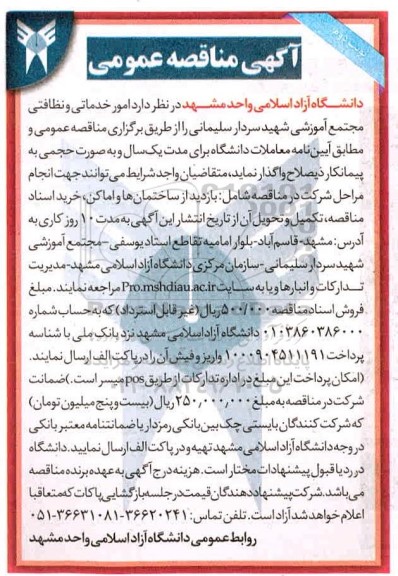 نوبت دوم
آگهی مناقصه عمومی
دانشگاه آزاد اسلامی واحد مشهد در نظر دارد امور خدماتی و نظافتی
مجتمع آموزشی شهید سردار سلیمانی را از طریق برگزاری مناقصه عمومی و
مطابق آیین نامه معاملات دانشگاه برای مدت یک سال و به صورت حجمی به
پیمانکار ذیصلاح واگذار نماید، متقاضیان واجد شرایط می توانند جهت انجام
مراحل شرکت در مناقصه شامل: بازدید از ساختمان ها و اماکن، خرید اسناد
مناقصه، تکمیل و تحویل آن از تاریخ انتشار این آگهی به مدت ۱۰ روز کاری به
آدرس: مشهد-قاسم آباد-بلوار امامیه تقاطع استاد یوسفی-مجتمع آموزشی
شهید سردار سلیمانی-سازمان مرکزی دانشگاه آزاد اسلامی مشهد-مدیریت
تدارکات و انبارها و یا به سایت Pro.mshdiau.ac.ir مراجعه نمایند. مبلغ
فروش اسناد مناقصه ۵۰۰/۰۰۰ ریال (غیر قابل استرداد) که به حساب شماره
۰۱۰۳۸۶۰۳۸۶۰۰۰ دانشگاه آزاد اسلامی مشهد نزد بانک ملی با شناسه
پرداخت ۱۰۰۰۹۰۴۵۱۱۱۹۱ واریز و فیش آن را در پاکت الف ارسال نمایند.
(امکان پرداخت این مبلغ در اداره تدارکات از طریق pos میسر است.) ضمانت
شرکت در مناقصه به مبلغ ۲۵۰,۰۰۰,۰۰۰ ریال (بیست و پنج میلیون تومان)
که شرکت کنندگان بایستی چک بین بانکی رمزدار یا ضمانتنامه معتبر بانکی
در وجه دانشگاه آزاد اسلامی مشهد تهیه و در پاکت الف ارسال نمایید. دانشگاه
در رد یا قبول پیشنهادات مختار است. هزینه درج آگهی به عهده برنده مناقصه
می باشد. شرکت پیشنهاد دهندگان قیمت در جلسه بازگشایی پاکات که متعاقبا
اعلام خواهد شد آزاد است. تلفن تماس: ۳۶۶۲۰۲۴۱-۳۶۶۳۱۰۸۱-۰۵۱
روابط عمومی دانشگاه آزاد اسلامی واحد مشهد